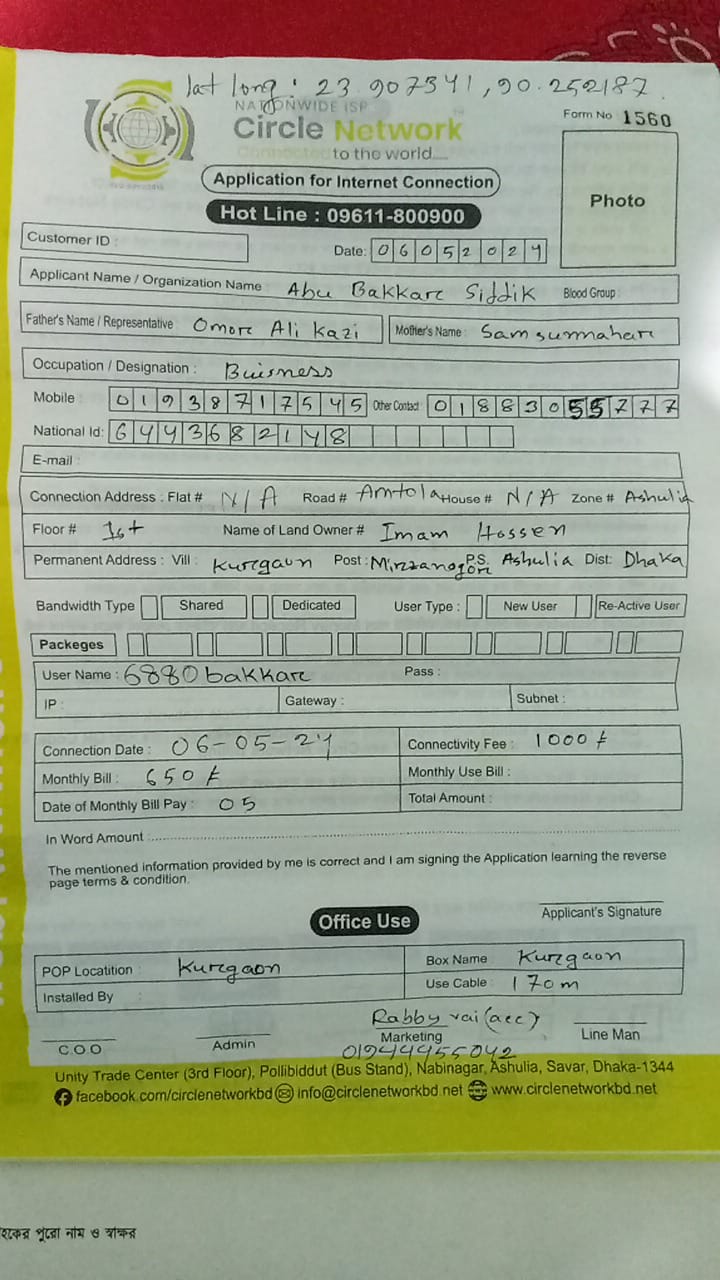 lat long : 23.907341, 90.252187.
NATIONWIDE ISP
Circle Network
Connected to the world....
Form No 1560
Photo
Application for Internet Connection
Hot Line : 09611-800900
Customer ID :
Date: 06052024
Applicant Name / Organization Name : Abu Bakkare Siddik Blood Group :
Father's Name / Representative Omore Ali Kazi Mother's Name : Samsunnahare
Occupation / Designation : Buisness
Mobile : 01938717545 Other Contact : 01883055777
National Id: 6443682148
E-mail :
Connection Address : Flat # N/A Road # Amtola House # N/A Zone # Ashulia
Floor # 1st Name of Land Owner # Imam Hossen
Permanent Address : Vill : Kurgaon Post : Mirzanogor P.S. Ashulia Dist: Dhaka
Bandwidth Type Shared Dedicated User Type : New User Re-Active User
Packeges
User Name : 6880bakkare Pass :
IP : Gateway : Subnet :
Connection Date : 06-05-24 Connectivity Fee : 1000 ৳
Monthly Bill : 650 ৳ Monthly Use Bill :
Date of Monthly Bill Pay : 05 Total Amount :
In Word Amount
The mentioned information provided by me is correct and I am signing the Application learning the reverse
page terms & condition.
Applicant's Signature
Office Use
POP Locatition : Kurgaon Box Name Kurgaon
Installed By : Use Cable : 170m
Rabby vai (aec)
C O O Admin Marketing Line Man
01944455042
Unity Trade Center (3rd Floor), Pollibiddut (Bus Stand), Nabinagar, Ashulia, Savar, Dhaka-1344
facebook.com/circlenetworkbd info@circlenetworkbd.net www.circlenetworkbd.net
হকের পুরো নাম ও স্বাক্ষর